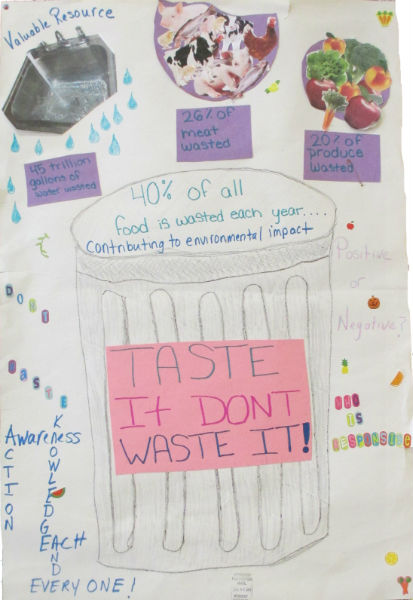 Valuable Resource
45 trillion
gallons of
water wasted
26% of
meat
wasted
20% of
produce
wasted
40% of all
food is wasted each year....
Contributing to environmental impact
Positive
or
Negative?
DONT
WASTE
TASTE
It DONT
WASTE IT!
WHO
IS
RESPONSIBLE
Awareness
ACTION
KNOWLEDGE
EACH
AND
EVERYONE!